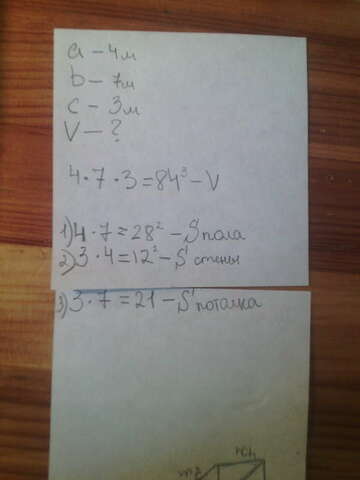 a – 4м
b – 7м
c – 3м
V – ?
4·7·3=84³–V
1) 4·7=28²–S пола
2) 3·4=12²–S стены
3) 3·7=21–S потолка